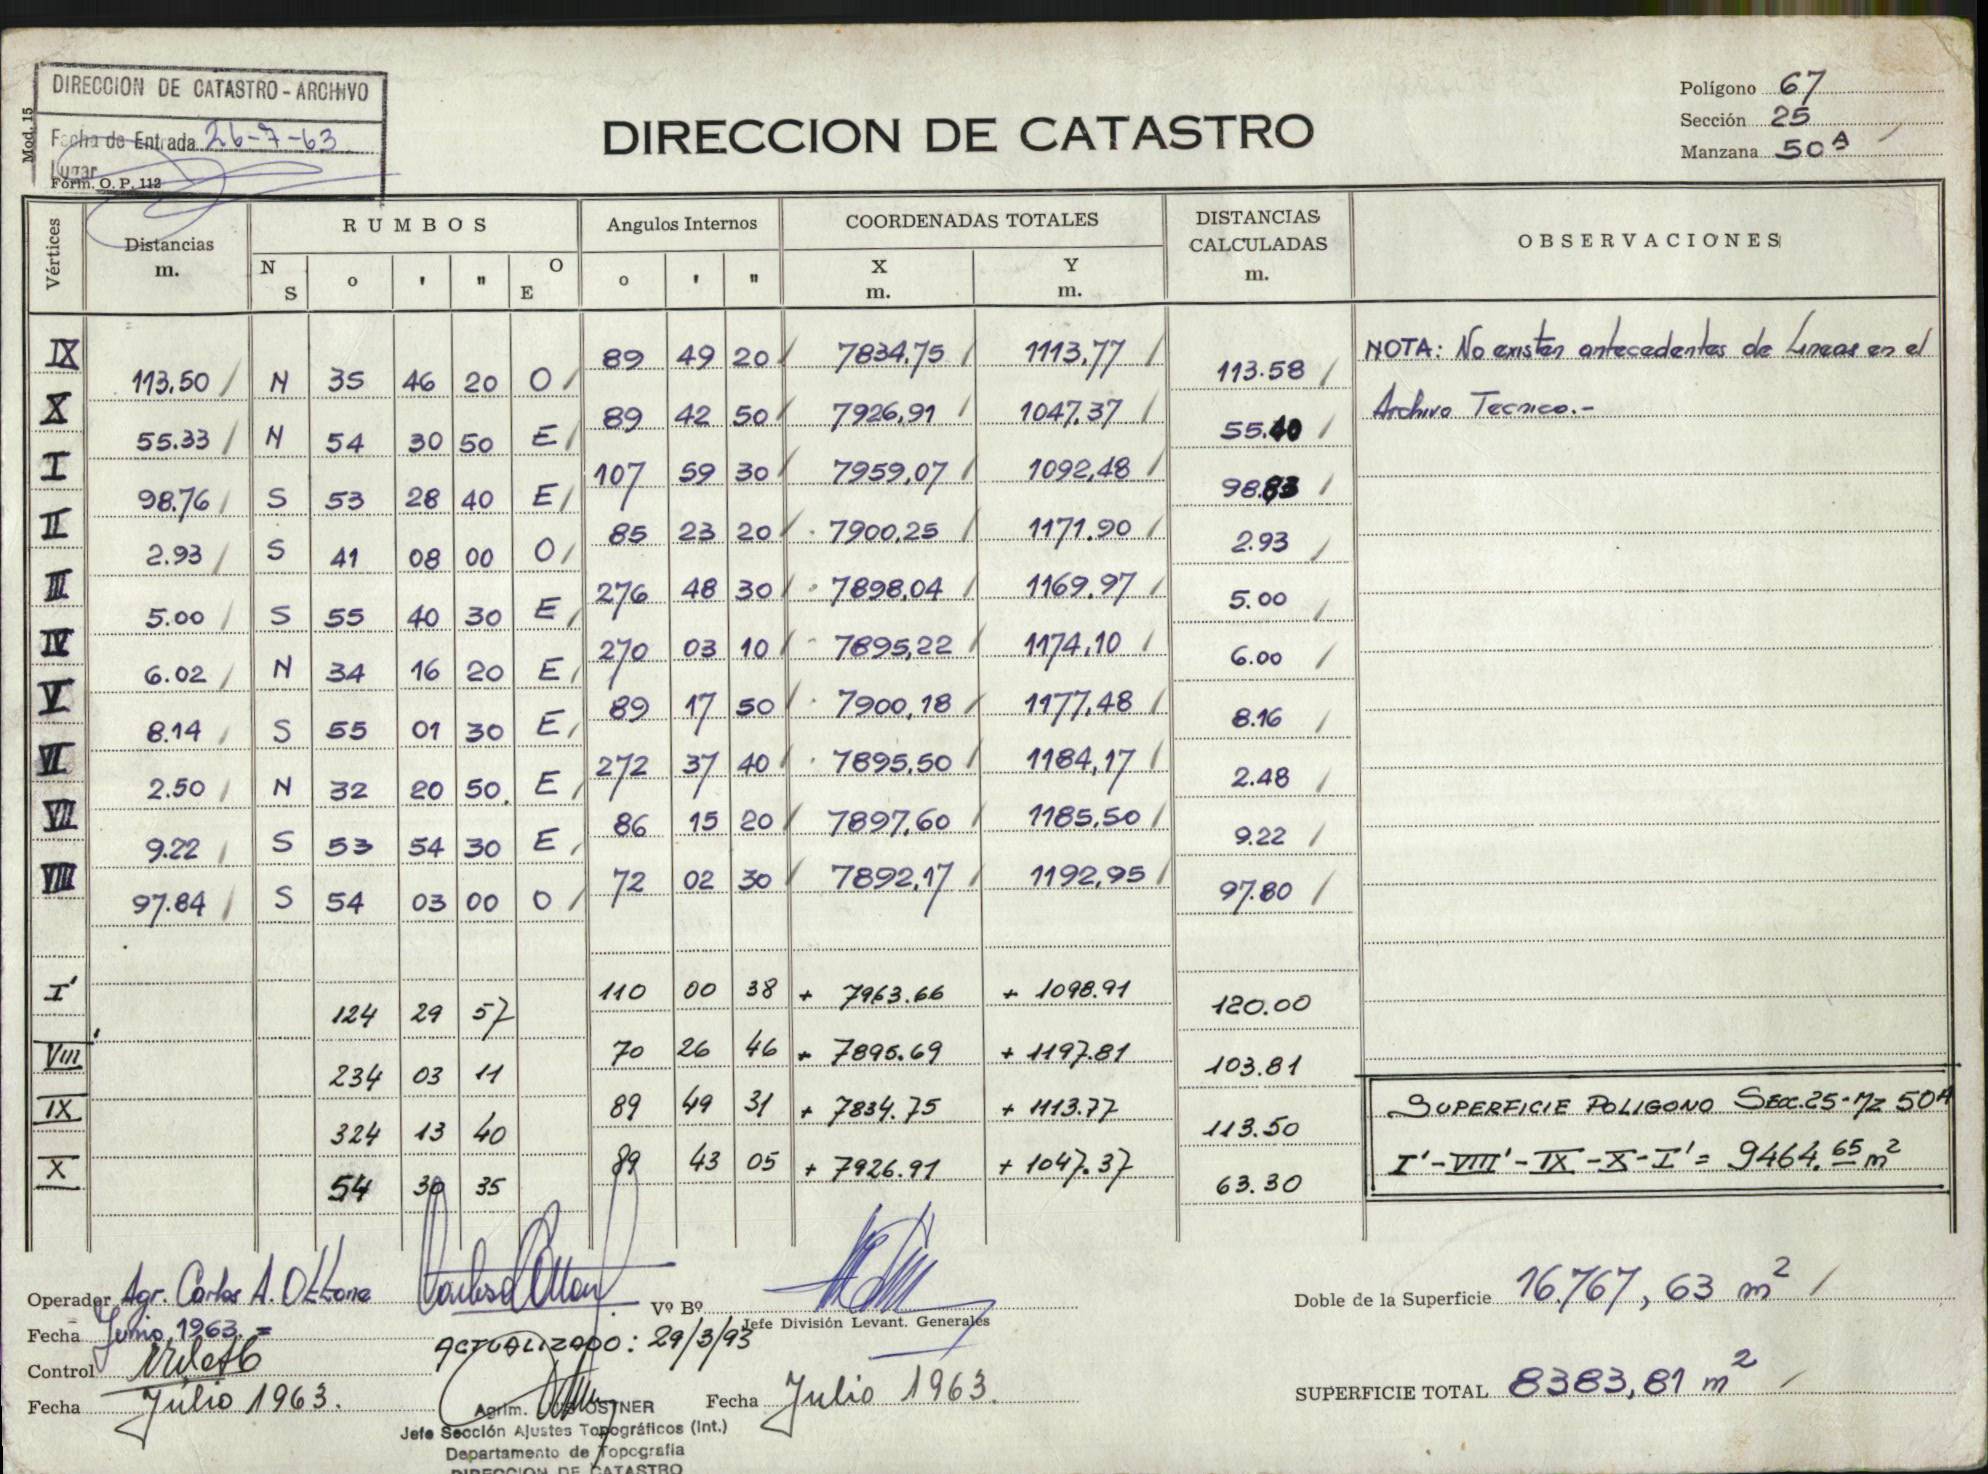 DIRECCION DE CATASTRO - ARCHIVO
Fecha de Entrada 26-7-63
Lugar
Mod. 15
Form. O. P. 112
DIRECCION DE CATASTRO
Polígono 67
Sección 25
Manzana 50 A
Vértices Distancias m. RUMBOS Angulos Internos COORDENADAS TOTALES DISTANCIAS CALCULADAS m. OBSERVACIONES
N S o ' " O E o ' " X m. Y m.
IX 89 49 20 7834,75 1113,77
113.50 N 35 46 20 O 113.58
X 89 42 50 7926,91 1047,37
55.33 N 54 30 50 E 55.40
I 107 59 30 7959,07 1092,48
98.76 S 53 28 40 E 98.83
II 85 23 20 7900,25 1171.90
2.93 S 41 08 00 O 2.93
III 276 48 30 7898,04 1169.97
5.00 S 55 40 30 E 5.00
IV 270 03 10 7895,22 1174,10
6.02 N 34 16 20 E 6.00
V 89 17 50 7900,18 1177,48
8.14 S 55 01 30 E 8.16
VI 272 37 40 7895,50 1184,17
2.50 N 32 20 50 E 2.48
VII 86 15 20 7897,60 1185,50
9.22 S 53 54 30 E 9.22
VIII 72 02 30 7892,17 1192,95
97.84 S 54 03 00 O 97.80
I' 110 00 38 + 7963.66 + 1098.91
124 29 57 120.00
VIII' 70 26 46 + 7895.69 + 1197.81
234 03 11 103.81
IX 89 49 31 + 7834.75 + 1113.77
324 13 40 113.50
X 89 43 05 + 7926.91 + 1047.37
54 30 35 63.30
NOTA: No existen antecedentes de Lineas en el
Archivo Tecnico.-
SUPERFICIE POLIGONO SEC.25-MZ 50A
I'-VIII'-IX-X-I' = 9464.65 m2
Operador Agr. Carlos A. Ottone
Fecha Junio, 1963. =
Control
Fecha Julio 1963.
Vº Bº
Jefe División Levant. Generales
ACTUALIZADO: 29/3/93
Fecha Julio 1963.
Agrim. OSTNER
Jefe Sección Ajustes Topográficos (Int.)
Departamento de Topografía
DIRECCION DE CATASTRO
Doble de la Superficie 16.767,63 m2
SUPERFICIE TOTAL 8383,81 m2